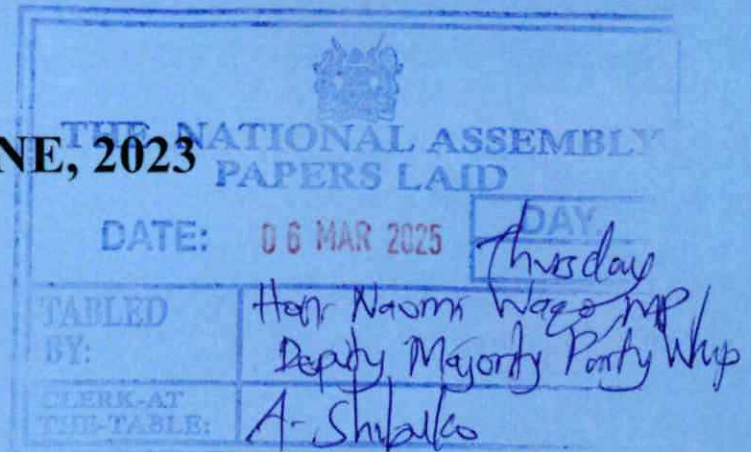 NE, 2023
THE NATIONAL ASSEMBLY
PAPERS LAID
DATE: 06 MAR 2025 DAY.
Thursday
TABLED BY: Hon. Naomi Waqo, MP/
Deputy Majority Party Whip
CLERK-AT THE-TABLE: A-Shibuko